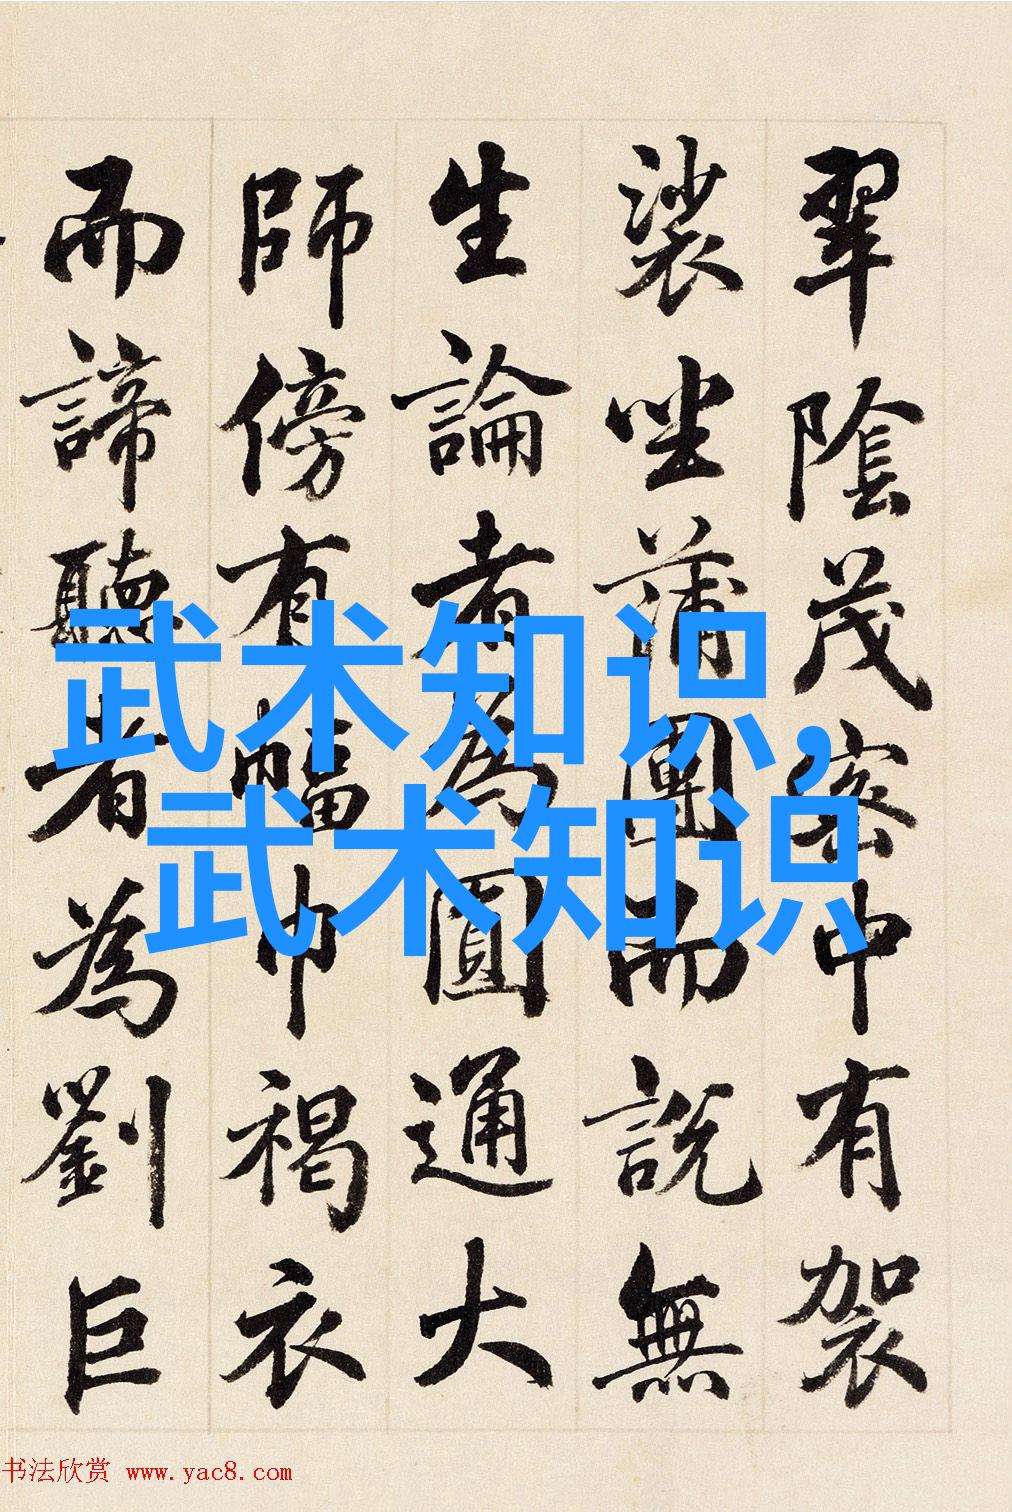 翠陰茂密中有袈
裟坐蒲團而說無
生論者為圓通大
師傍有幅巾褐衣
而諦聽者為劉巨
武术知识,
武术知识
书法欣赏 www.yac8.com